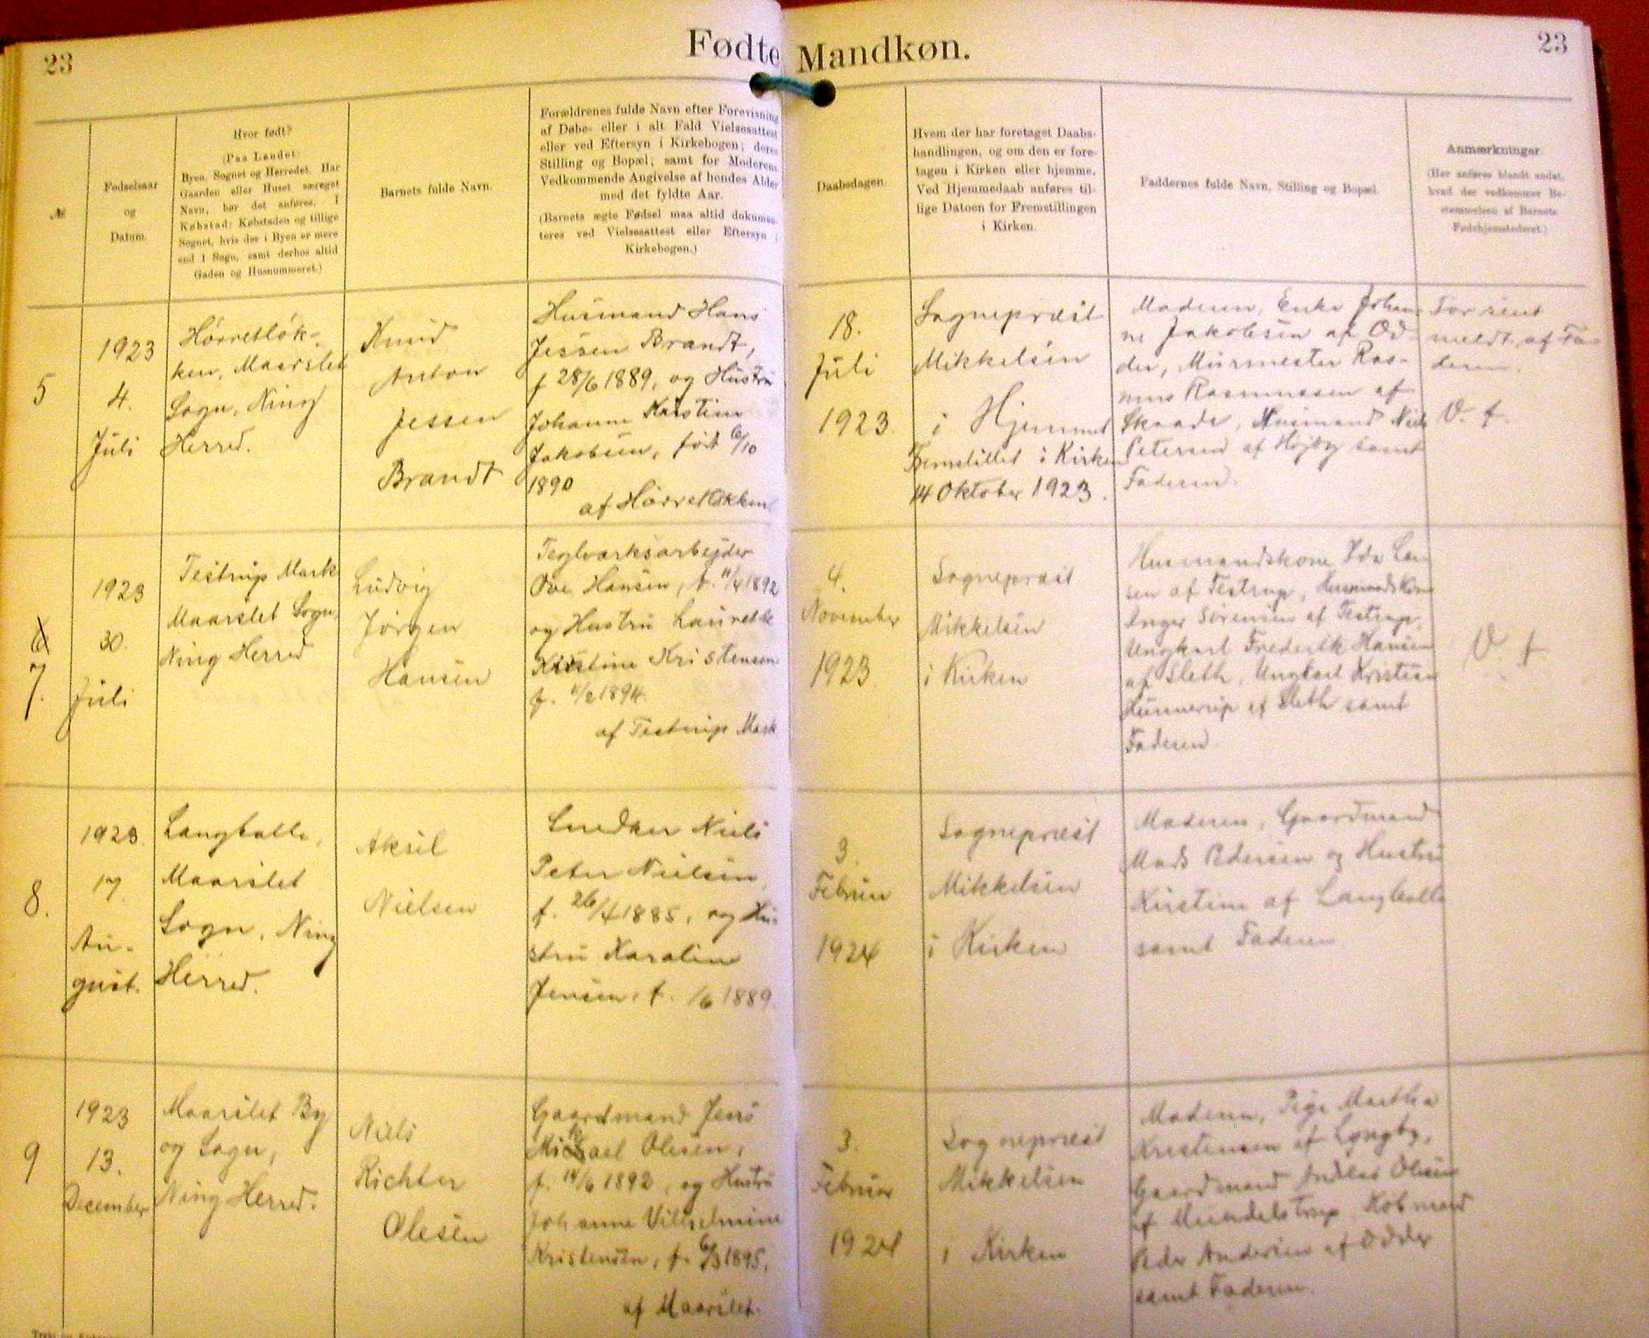 23
Fødte Mandkøn.
23
№
Fødselsaar
og
Datum.
Hvor født?
(Paa Landet:
Byen, Sognet og Herredet. Har
Gaarden eller Huset særeget
Navn, bør det anføres. I
Købstad: Købstaden og tillige
Sognet, hvis der i Byen er mere
end 1 Sogn, samt derhos altid
Gaden og Husnummeret.)
Barnets fulde Navn.
Forældrenes fulde Navn efter Forevisning
af Døbe- eller i alt Fald Vielsesattest
eller ved Eftersyn i Kirkebogen; deres
Stilling og Bopæl; samt for Moderens
Vedkommende Angivelse af hendes Alder
med det fyldte Aar.
(Barnets ægte Fødsel maa altid dokumen-
teres ved Vielsesattest eller Eftersyn i
Kirkebogen.)
Daabsdagen.
Hvem der har foretaget Daabs-
handlingen, og om den er fore-
tagen i Kirken eller hjemme.
Ved Hjemmedaab anføres til-
lige Datoen for Fremstillingen
i Kirken.
Faddernes fulde Navn, Stilling og Bopæl.
Anmærkninger.
(Her anføres blandt andet,
hvad der vedkommer Be-
stemmelsen af Barnets
Fødehjemstederet.)
5
1923
4.
Juli
Hørretløk-
ken, Maarslet
Sogn, Ning
Herred.
Knud
Anton
Jessen
Brandt
Husmand Hans
Jessen Brandt,
f 28/6 1889, og Hustru
Johanne Kirstine
Jakobsen, født 6/10
1890
af Hørretløkken
18.
Juli
1923.
Sognepræst
Mikkelsen
i Hjemmet
Fremstillet i Kirken
14 Oktober 1923.
Moderen, Enke Johan-
ne Jakobsen af Od-
der, Murmester Ras-
mus Rasmussen af
Skaade, Husmand Niels
Petersen af Højby samt
Faderen.
For sent
meldt af Fa-
deren.
V. f.
6
7.
1923
30.
Juli
Testrup Mark
Maarslet Sogn,
Ning Herred
Ludvig
Jørgen
Hansen
Teglværksarbejder
Ove Hansen, f. 11/4 1892
og Hustru Laurette
Kirstine Kristensen
f. 11/2 1894.
af Testrup Mark
4.
November
1923.
Sognepræst
Mikkelsen
i Kirken
Husmandskone Ida Lar-
sen af Testrup, Husmandskone
Anger Sørensen af Testrup,
Ungkarl Frederik Hansen
af Sleth, Ungkarl Kristian
af Sleth samt
Faderen.
V. f.
8.
1923.
17.
Au-
gust.
Langballe,
Maarslet
Sogn, Ning
Herred.
Aksel
Nielsen
Snedker Niels
Peter Nielsen,
f. 26/4 1885, og Hu-
stru Karoline
Jensen, f. 1/6 1889.
3.
Februar
1924
Sognepræst
Mikkelsen
i Kirken
Moderen, Gaardmand
Mads Pedersen og Hustru
Kirstine af Langballe
samt Faderen
9
1923
13.
December
Maarslet By
og Sogn,
Ning Herred.
Niels
Richter
Olesen
Gaardmand Jens
Mikael Olesen,
f. 14/6 1892, og Hustru
Johanne Vilhelmine
Kristensen, f. 6/3 1895,
af Maarslet.
3.
Februar
1924
Sognepræst
Mikkelsen
i Kirken
Moderen, Pige Martha
Kristensen af Lyngby,
Gaardmand Olesen
af Købmand
Peder Andersen af Odder
samt Faderen.